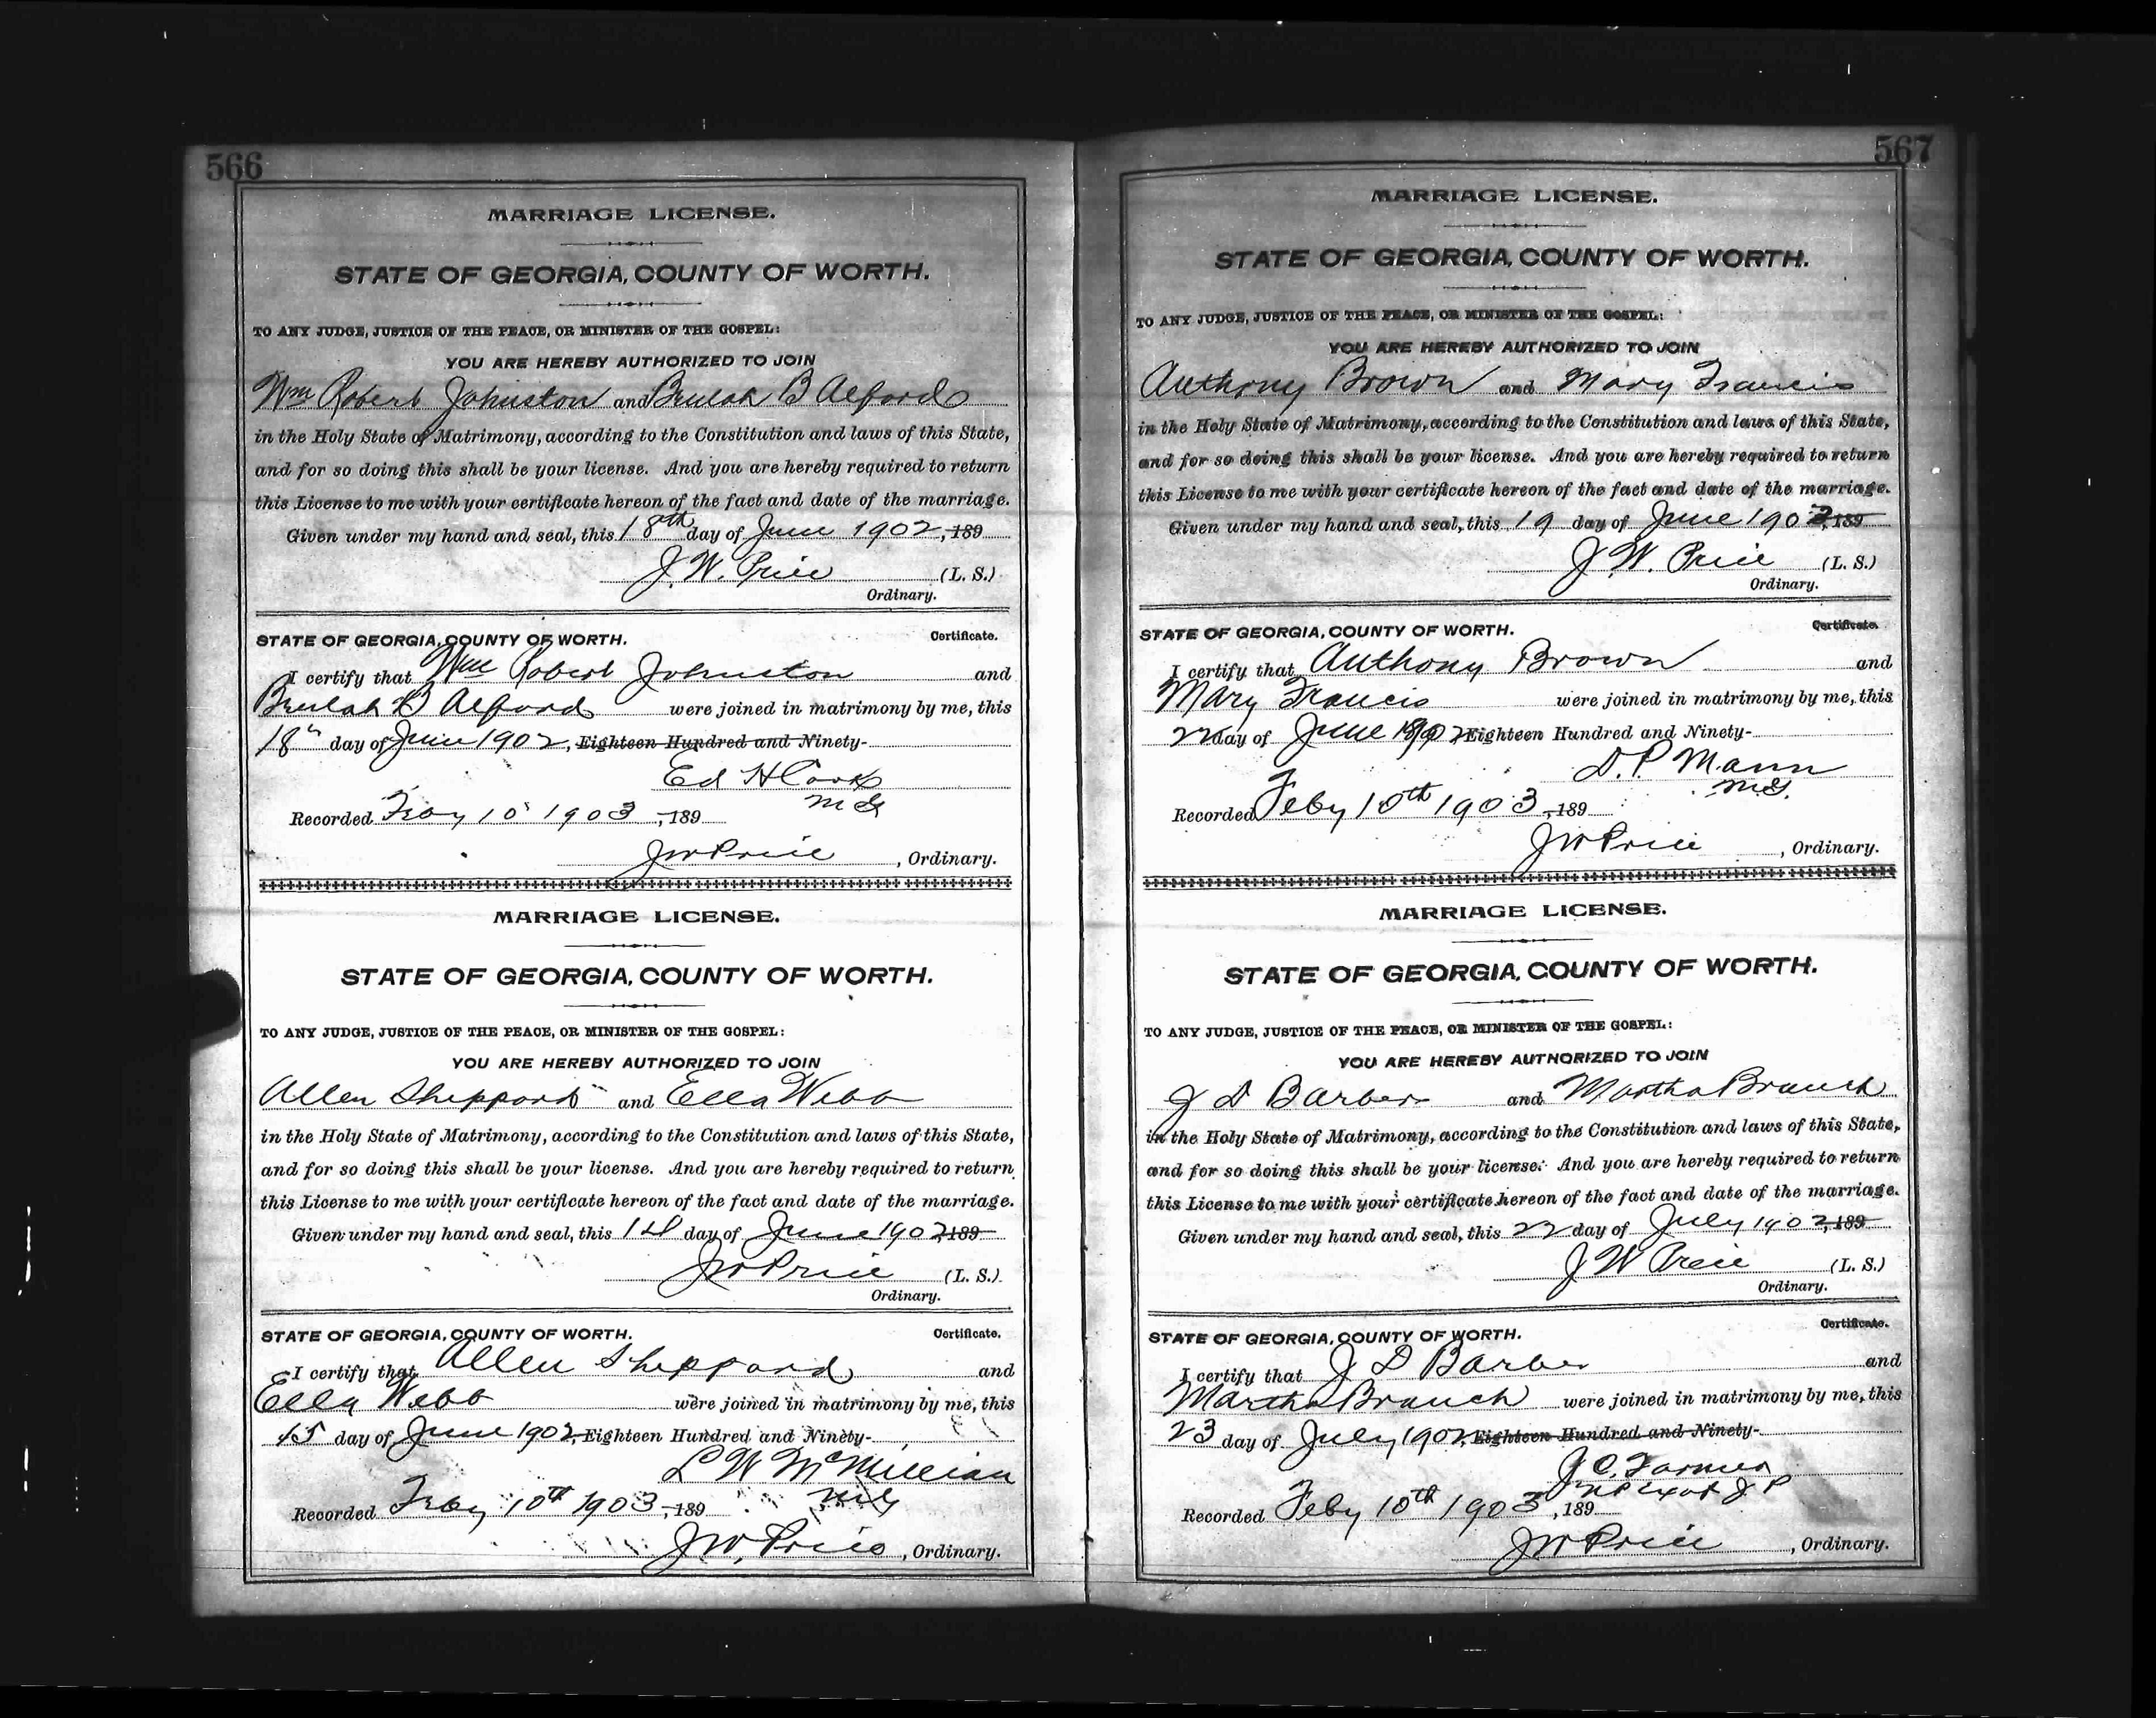 566
MARRIAGE LICENSE.
STATE OF GEORGIA, COUNTY OF WORTH.
TO ANY JUDGE, JUSTICE OF THE PEACE, OR MINISTER OF THE GOSPEL:
YOU ARE HEREBY AUTHORIZED TO JOIN
Wm Robert Johnston and Beulah B Alford
in the Holy State of Matrimony, according to the Constitution and laws of this State,
and for so doing this shall be your license. And you are hereby required to return
this License to me with your certificate hereon of the fact and date of the marriage.
Given under my hand and seal, this 18th day of June 1902, 189
J. W. Price (L. S.)
Ordinary.
STATE OF GEORGIA, COUNTY OF WORTH. Certificate.
I certify that Wm Robert Johnston and
Beulah B Alford were joined in matrimony by me, this
18th day of June 1902, Eighteen Hundred and Ninety-
Ed H Cook
M G
Recorded Feby 10 1903, 189
J W Price, Ordinary.
MARRIAGE LICENSE.
STATE OF GEORGIA, COUNTY OF WORTH.
TO ANY JUDGE, JUSTICE OF THE PEACE, OR MINISTER OF THE GOSPEL:
YOU ARE HEREBY AUTHORIZED TO JOIN
Allen Sheppard and Ella Webb
in the Holy State of Matrimony, according to the Constitution and laws of this State,
and for so doing this shall be your license. And you are hereby required to return
this License to me with your certificate hereon of the fact and date of the marriage.
Given under my hand and seal, this 14 day of June 1902 189
J W Price (L. S.)
Ordinary.
STATE OF GEORGIA, COUNTY OF WORTH. Certificate.
I certify that Allen Sheppard and
Ella Webb were joined in matrimony by me, this
15 day of June 1902, Eighteen Hundred and Ninety-
L W McMillian
M G
Recorded Feby 10th 1903, 189
J W. Price, Ordinary.
567
MARRIAGE LICENSE.
STATE OF GEORGIA, COUNTY OF WORTH.
TO ANY JUDGE, JUSTICE OF THE PEACE, OR MINISTER OF THE GOSPEL:
YOU ARE HEREBY AUTHORIZED TO JOIN
Anthony Brown and Mary Francis
in the Holy State of Matrimony, according to the Constitution and laws of this State,
and for so doing this shall be your license. And you are hereby required to return
this License to me with your certificate hereon of the fact and date of the marriage.
Given under my hand and seal, this 19 day of June 1902, 189
J. W. Price (L. S.)
Ordinary.
STATE OF GEORGIA, COUNTY OF WORTH. Certificate.
I certify that Anthony Brown and
Mary Francis were joined in matrimony by me, this
22 day of June 1902, Eighteen Hundred and Ninety-
D. P. Mann
M.G.
Recorded Feby 10th 1903, 189
J W Price, Ordinary.
MARRIAGE LICENSE.
STATE OF GEORGIA, COUNTY OF WORTH.
TO ANY JUDGE, JUSTICE OF THE PEACE, OR MINISTER OF THE GOSPEL:
YOU ARE HEREBY AUTHORIZED TO JOIN
J D Barber and Martha Branch
in the Holy State of Matrimony, according to the Constitution and laws of this State,
and for so doing this shall be your license. And you are hereby required to return
this License to me with your certificate hereon of the fact and date of the marriage.
Given under my hand and seal, this 22 day of July 1902, 189
J W Price (L. S.)
Ordinary.
STATE OF GEORGIA, COUNTY OF WORTH. Certificate.
I certify that J D Barber and
Martha Branch were joined in matrimony by me, this
23 day of July 1902, Eighteen Hundred and Ninety-
J. C. Farmer
N P & Ex of J P
Recorded Feby 10th 1903, 189
J W Price, Ordinary.